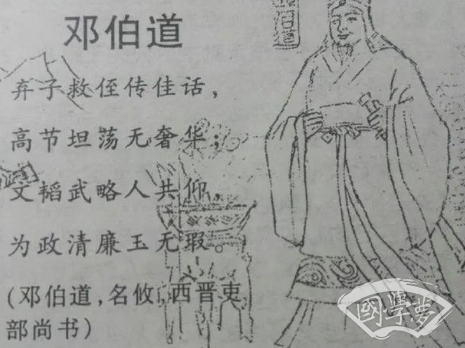 邓伯道
弃子救侄传佳话，
高节坦荡无奢华；
文韬武略人共仰，
为政清廉玉无瑕。
(邓伯道，名攸，西晋吏
部尚书)
伯道
國學夢